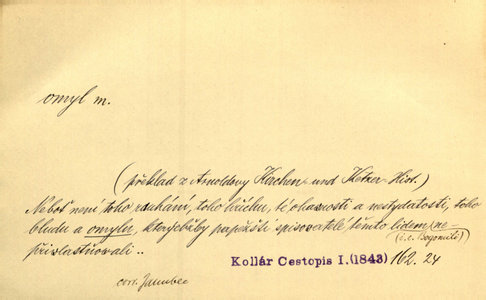 omyl m.
(překlad z Arnoldovy Kirchen- und Ketzer-Hist.)
Neboť není toho rouhání, toho hříchu, té ohavnosti a nestydatosti, toho
bludu a omylu, kterýchžby papežští spisovatelé těmto lidem ne-
(t. Bogomilů)
přivlastňovali..
Kollár Cestopis I. (1843) 162. 24